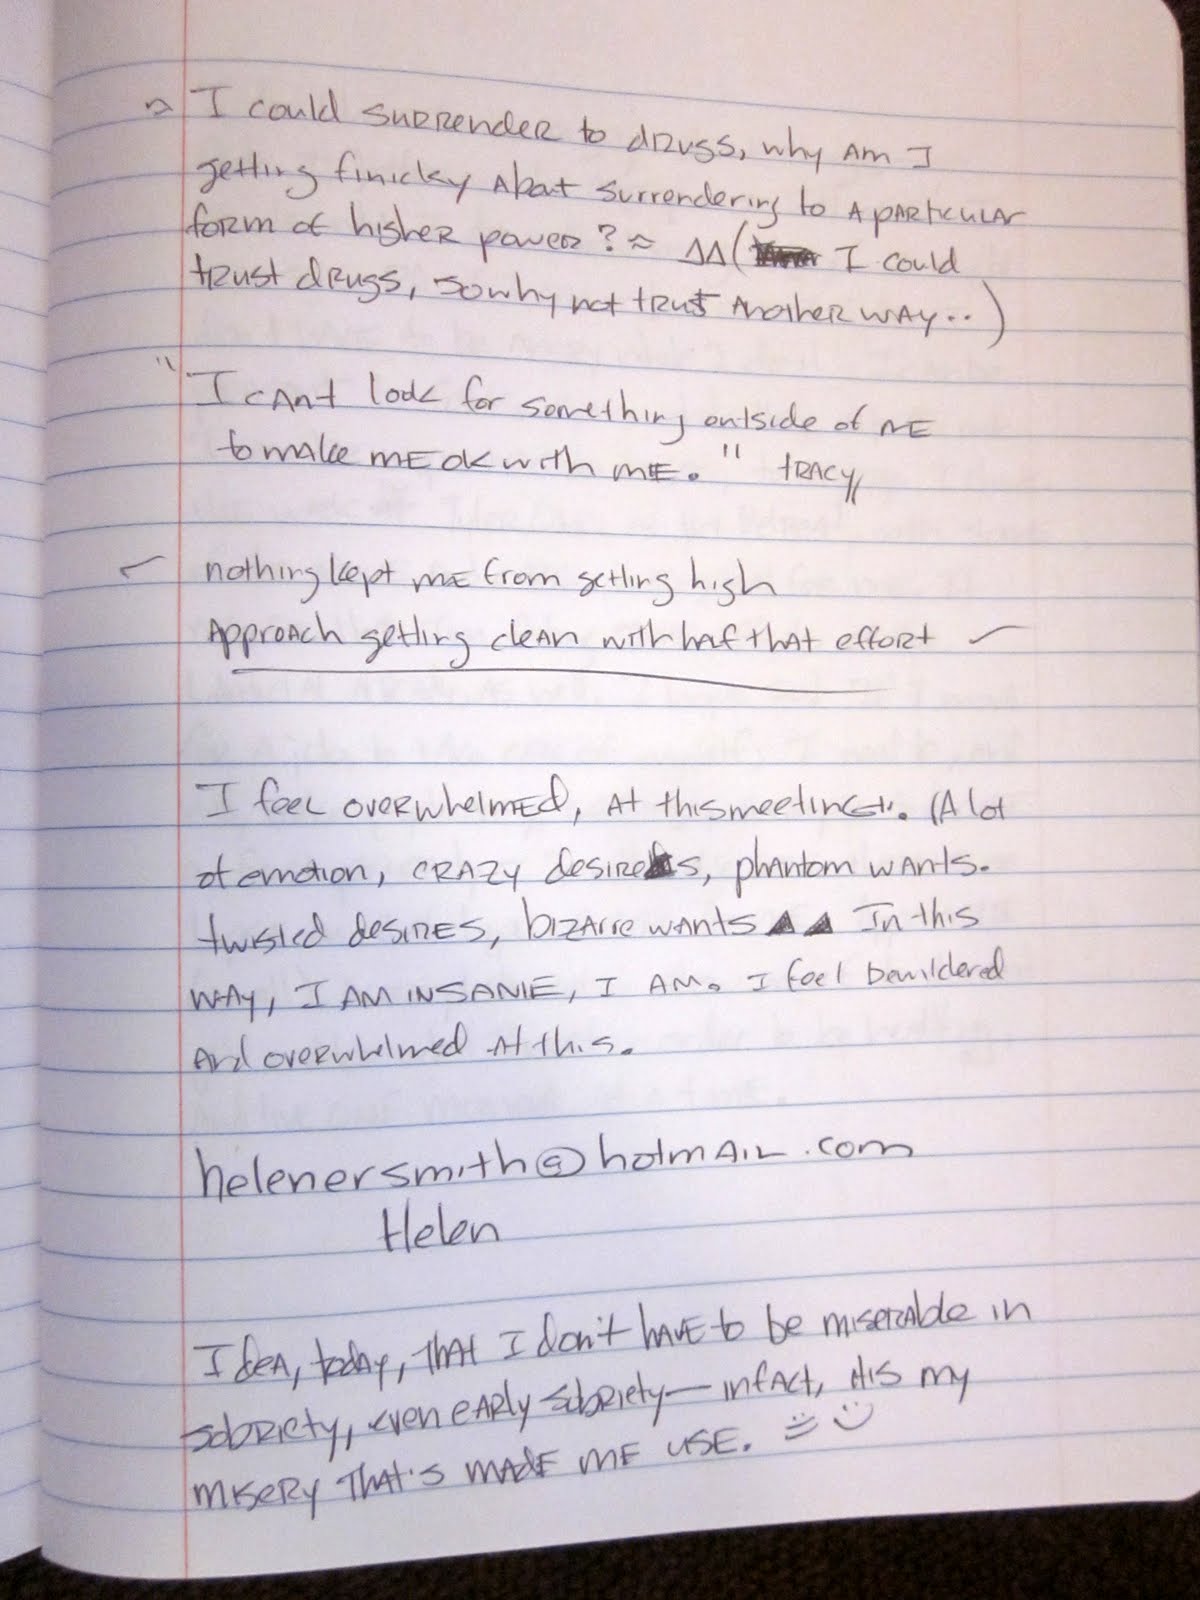 I could surrender to drugs, why am I
getting finicky about surrendering to a particular
form of higher power? ≈ ΔΔ ( I could
trust drugs, so why not trust another way.. )
"I can't look for something outside of me
to make me ok with me." Tracy
nothing kept me from getting high
Approach getting clean with half that effort
I feel overwhelmed, at this meeting. (A lot
of emotion, crazy desires, phantom wants.
twisted desires, bizarre wants ▲ ▲ In this
way, I am insane, I am. I feel bewildered
and overwhelmed at this.
helenersmith@hotmail.com
Helen
Idea, today, that I don't have to be miserable in
sobriety, even early sobriety— infact, it is my
misery that's made me use. =) :)